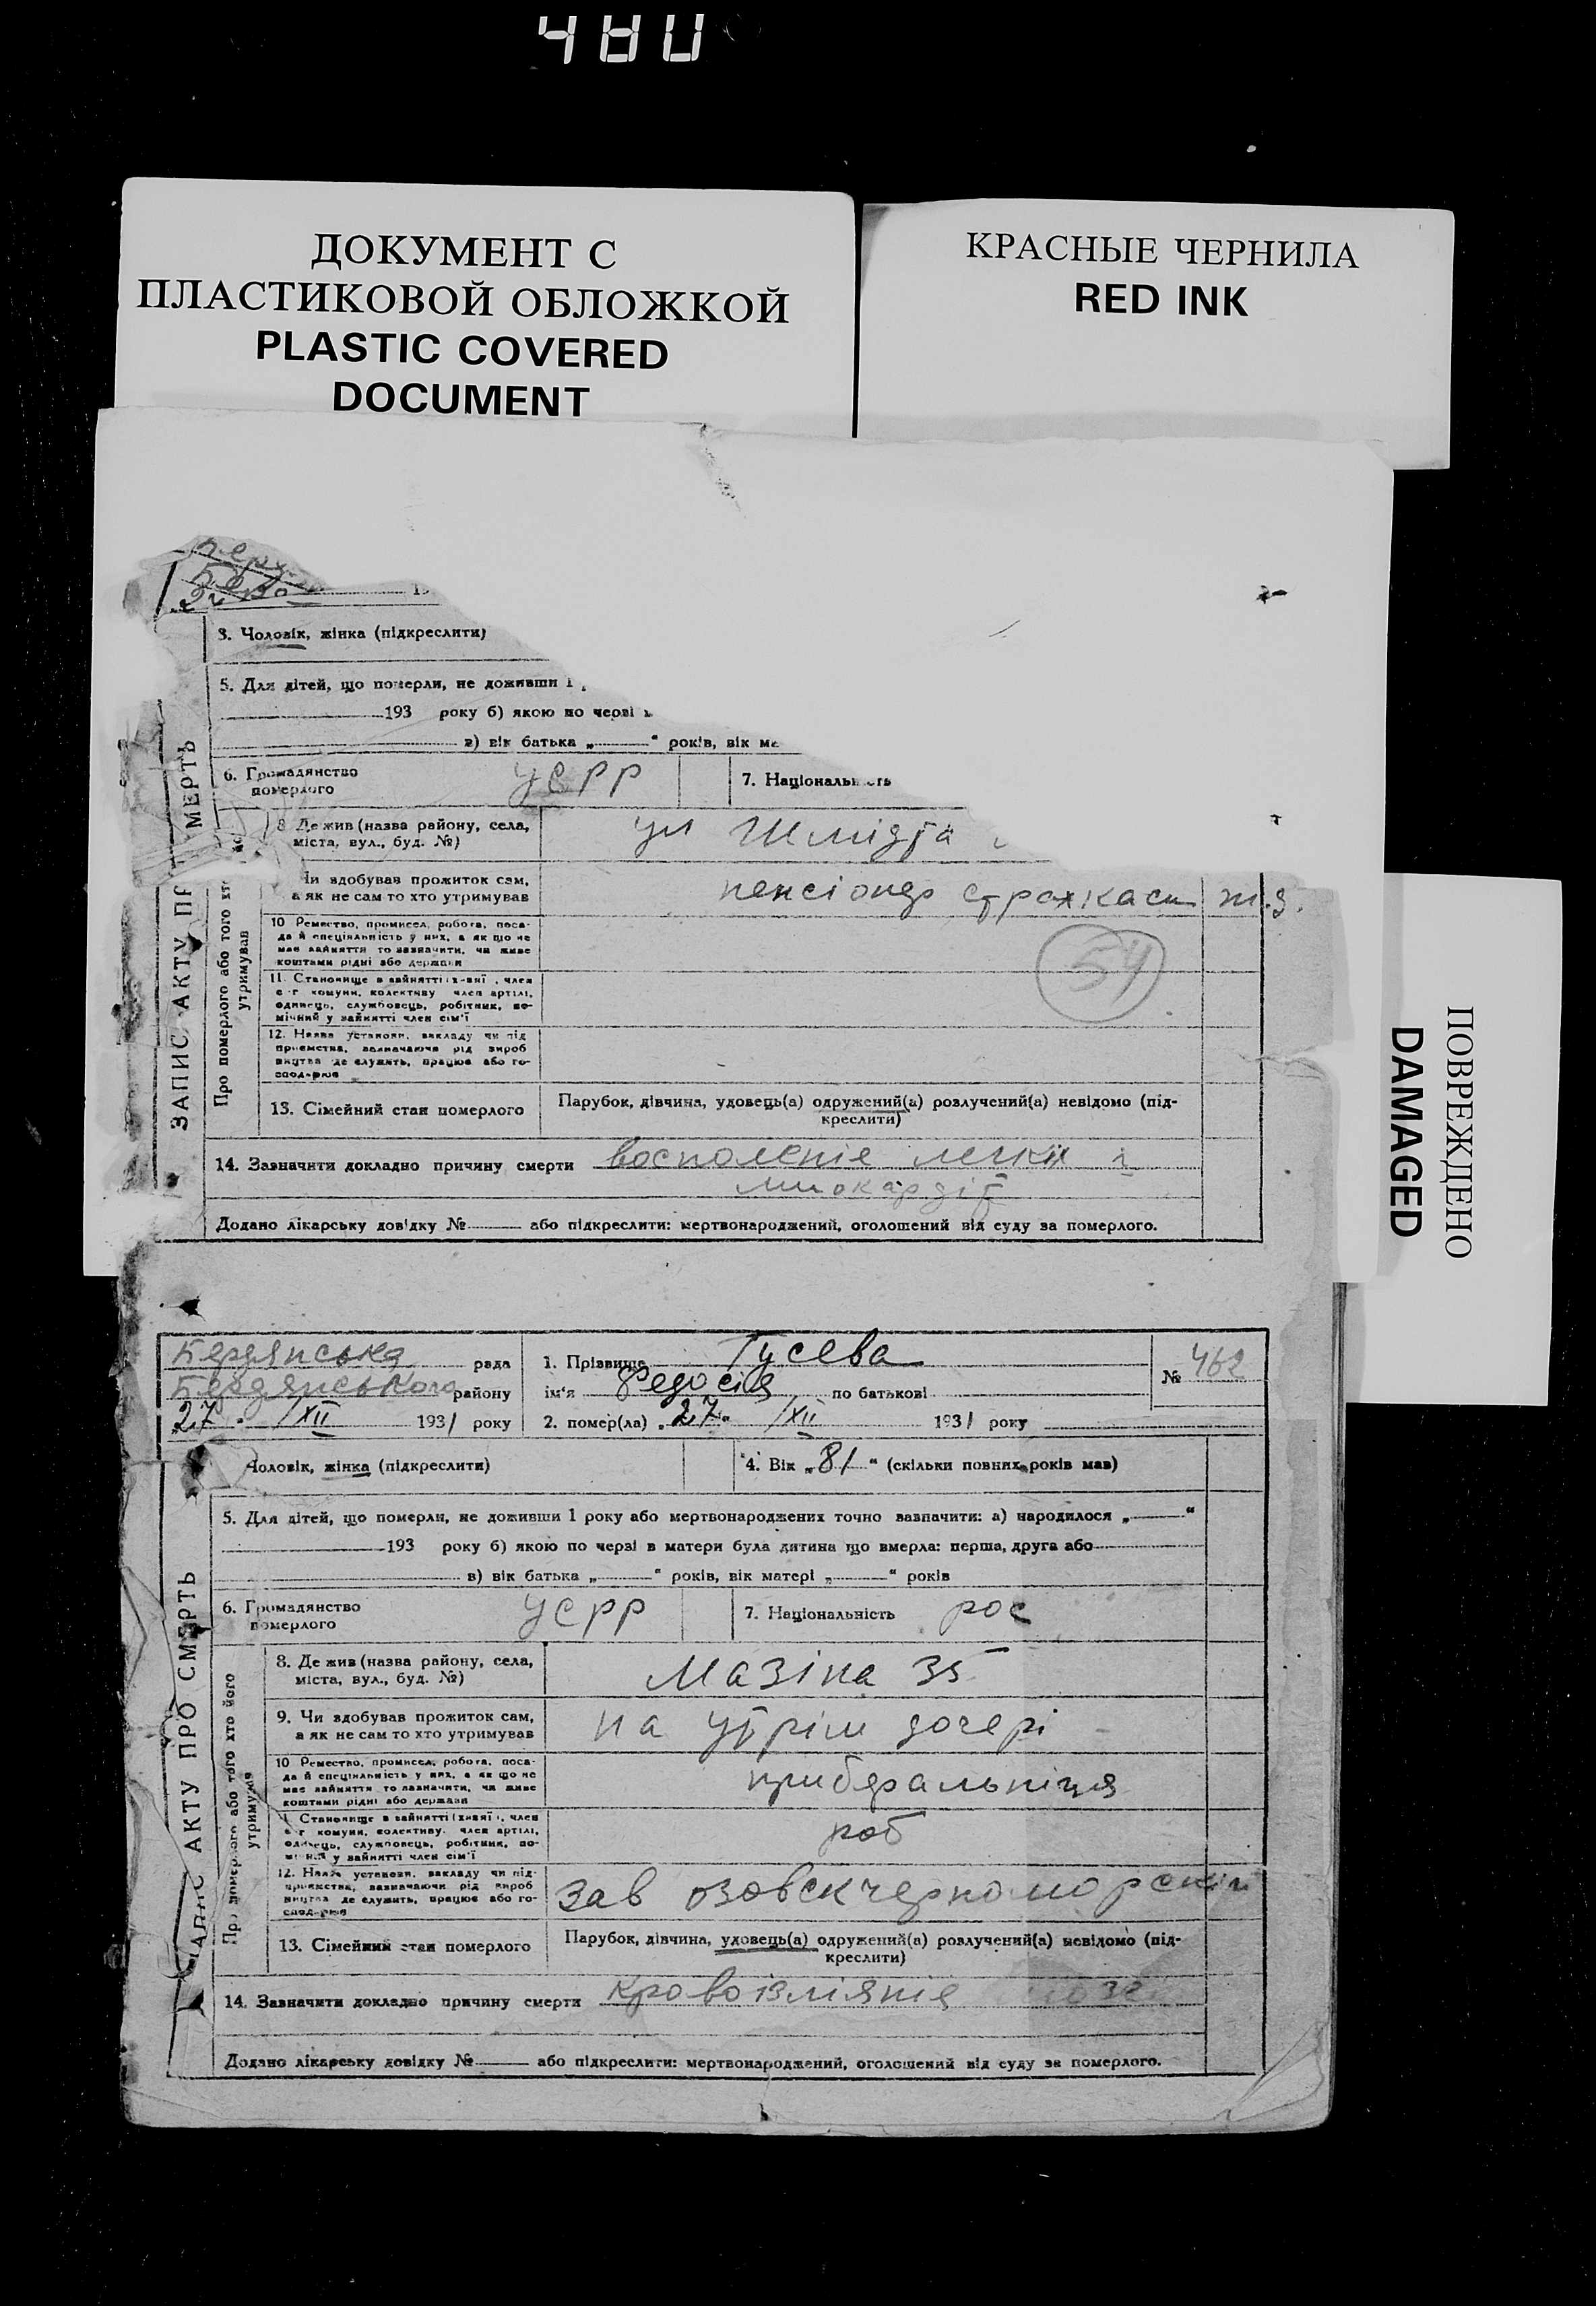 480
ДОКУМЕНТ С
ПЛАСТИКОВОЙ ОБЛОЖКОЙ
PLASTIC COVERED
DOCUMENT
КРАСНЫЕ ЧЕРНИЛА
RED INK
3. Чоловік, жінка (підкреслити)
5. Для дітей, що померли, не доживши 1
193 року б) якою по черзі
в) вік батька „ “ років, вік ма
6. Громадянство
померлого
УСРР
7. Національність
8. Де жив (назва району, села,
міста, вул., буд. №)
ул Шмідта
Чи здобував прожиток сам,
а як не сам то хто утримував
пенсіонер страхкаси
10 Ремество, промисел, робота, поса-
да й спеціяльність у них, а як що не
має зайняття то зазначити, чи живе
коштами рідні або держави
54
11. Становище в зайнятті
с-г комуни, колективу член артілі,
одинець, службовець, робітник, по-
мічний у зайнятті член сім'ї
12. Назва установи, закладу чи під
приємства, зазначаючи рід вироб
ництва де служить, працює або го-
сподарює
13. Сімейний стан померлого
Парубок, дівчина, удовець(а) одружений(а) розлучений(а) невідомо (під-
креслити)
14. Зазначити докладно причину смерти восполеніе легких и
миокардіт
Додано лікарську довідку № або підкреслити: мертвонароджений, оголошений від суду за померлого.
ЗАПИС АКТУ ПР МЕРТЬ
Про померлого або того хто
утримував
ПОВРЕЖДЕНО
DAMAGED
Бердянська рада
Бердянського району
27. /XII 1931 року
1. Прізвище Гусева
ім'я Федосія по батькові
2. помер(ла) „27“ /XII 1931 року
№ 462
Чоловік, жінка (підкреслити)
4. Вік „81“ (скільки повних років мав)
5. Для дітей, що померли, не доживши 1 року або мертвонароджених точно зазначити: а) народилося „ “
193 року б) якою по черзі в матери була дитина що вмерла: перша, друга або
в) вік батька „ “ років, вік матері „ “ років
6. Громадянство
померлого
УСРР
7. Національність рос
8. Де жив (назва району, села,
міста, вул., буд. №)
Мазіна 35
9. Чи здобував прожиток сам,
а як не сам то хто утримував
на утрім дочері
10 Ремество, промисел, робота, поса-
да й спеціяльність у них, а як що не
має зайняття то зазначити, чи живе
коштами рідні або держави
приберальниця
Становище в зайнятті (хазяї), член
с-г комуни, колективу, член артілі,
одинець, службовець, робітник, по-
мічний у зайнятті член сім'ї
роб
12. Назва установи, закладу чи під-
приємства, зазначаючи рід вироб
ництва де служить, працює або го-
сподарює
зав озовскчерноморский
13. Сімейний стан померлого
Парубок, дівчина, удовець(а) одружений(а) розлучений(а) невідомо (під-
креслити)
14. Зазначити докладно причину смерти кровоізліяніе
Додано лікарську довідку № або підкреслити: мертвонароджений, оголошений від суду за померлого.
АКТУ ПРО СМЕРТЬ
Про померлого або того хто його
утримував